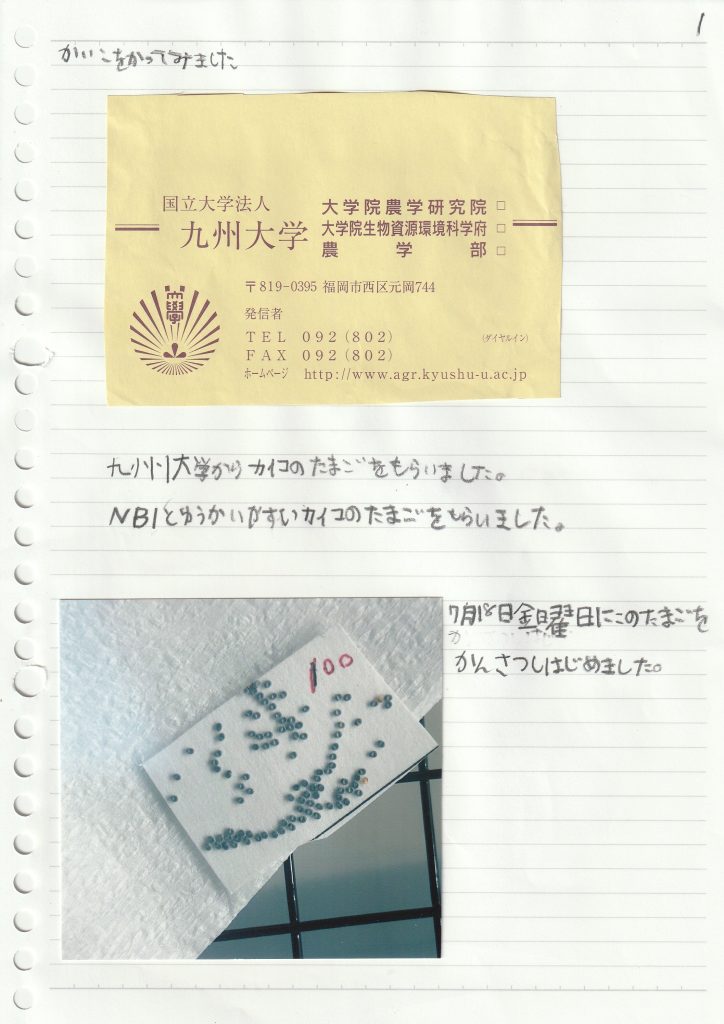 1
かいこをかってみました
国立大学法人
九州大学
大学院農学研究院 □
大学院生物資源環境科学府 □
農学部 □
〒819-0395 福岡市西区元岡744
発信者
TEL 092(802) (ダイヤルイン)
FAX 092(802)
ホームページ http://www.agr.kyushu-u.ac.jp
九州大学からカイコのたまごをもらいました。
NB1とゆうかいやすいカイコのたまごをもらいました。
7月18日金曜日にこのたまごを
かんさつしはじめました。
100